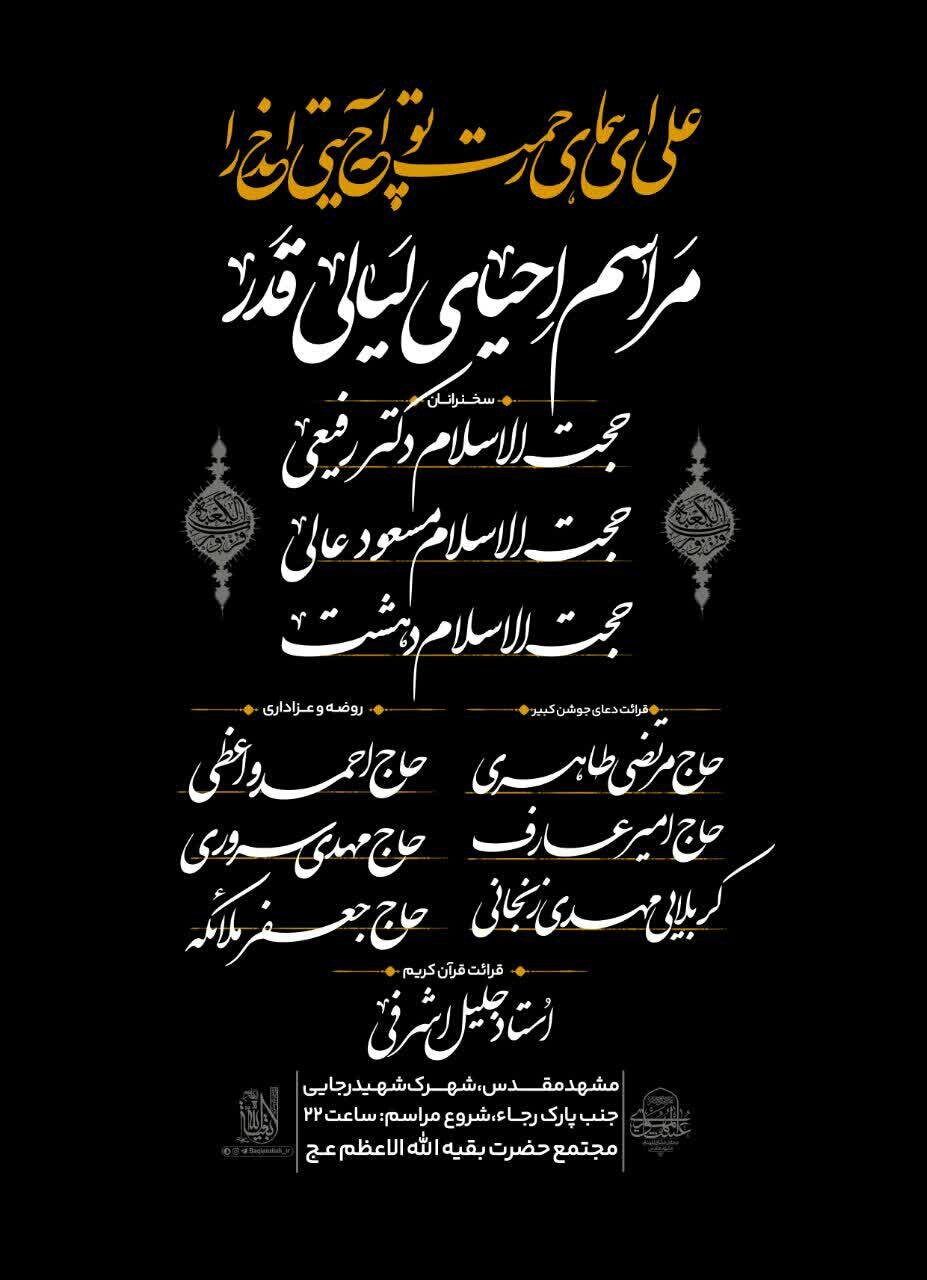 علی ای همای رحمت تو چه آیتی خدا را
مَراسم اِحیای لیَالی قَدر
سخنرانان
حجت الاسلام دکتر رفیعی
حجت الاسلام مسعود عالی
حجت الاسلام دهشت
فزت و رب الکعبة
فزت و رب الکعبة
قرائت دعای جوشن کبیر
حاج مرتضی طاهری
حاج امیر عارف
کربلایی مهدی زنجانی
روضه و عزاداری
حاج احمد واعظی
حاج مهدی سروری
حاج جعفر ملائکه
قرائت قرآن کریم
اُستاد جلیل اشرفی
مشهد مقدس، شهرک شهید رجایی
جنب پارک رجاء، شروع مراسم: ساعت ۲۲
مجتمع حضرت بقیه الله الاعظم عج